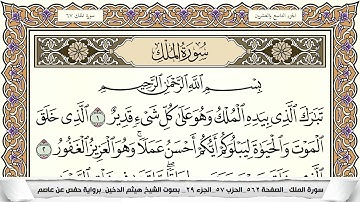 الجزء التاسع والعشرون
سورة الملك ٦٧
سُورَةُ المُلْكِ
بِسْمِ اللَّهِ الرَّحْمَٰنِ الرَّحِيمِ
تَبَٰرَكَ الَّذِي بِيَدِهِ الْمُلْكُ وَهُوَ عَلَىٰ كُلِّ شَيْءٍ قَدِيرٌ ١ الَّذِي خَلَقَ
الْمَوْتَ وَالْحَيَوٰةَ لِيَبْلُوَكُمْ أَيُّكُمْ أَحْسَنُ عَمَلًا ۚ وَهُوَ الْعَزِيزُ الْغَفُورُ ٢
سورة الملك _الصفحة ٥٦٢_الحزب ٥٧_الجزء ٢٩_ بصوت الشيخ هيثم الدخين_برواية حفص عن عاصم